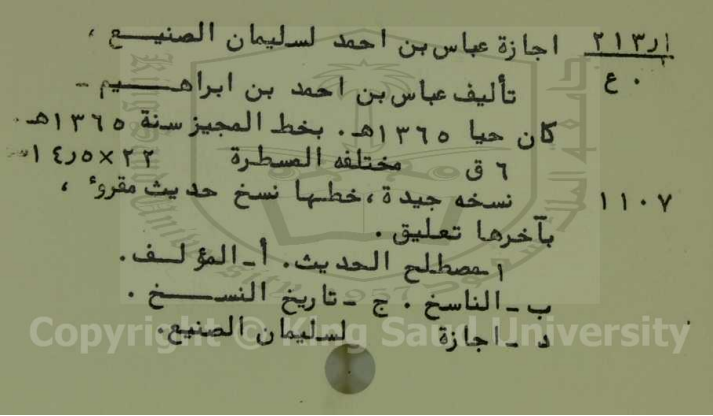 ٢١٣ر١ اجازة عباس بن احمد لسليمان الصنيع ،
ع . تأليف عباس بن احمد بن ابراهيم -
كان حيا ١٣٦٥هـ. بخط المجيز سنة ١٣٦٥هـ.
٦ ق مختلفه المسطرة ٢٢×٥ر١٤سم
١١٠٧ نسخه جيدة ،خطها نسخ حديث مقروء ،
بآخرها تعليق .
١-مصطلح الحديث. أ-المؤلف.
ب-الناسخ . ج -تاريخ النسخ .
د -اجازة لسليمان الصنيع.
Copyright © King Saud University